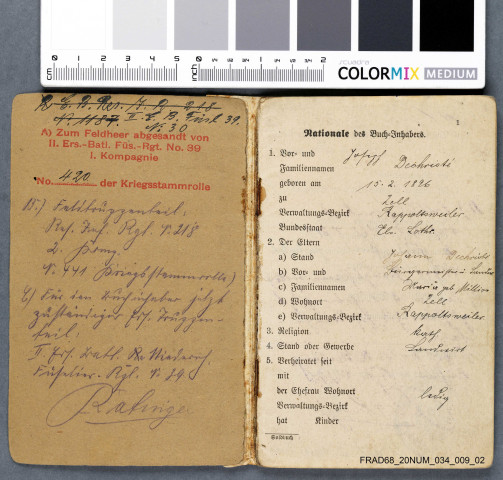 cm
0 1 2 3 4 5
inch
scuadra
COLORMIX MEDIUM
II. E. B. Füsl. 39.
№ 30
A) Zum Feldheer abgesandt von
II. Ers.-Batl. Füs.-Rgt. No. 39
I. Kompagnie
No. 420 der Kriegsstammrolle
B.) Feldtruppenteil:
Res. Inf. Rgt. № 218
2. Komp.
№ 441 Kriegsstammrolle)
C) Für den Buchinhaber jetzt
zuständiger Ers. Truppen-
teil:
II. Ers. Batl. Niederrh.
Füselier-Rgt. № 39
Ratingen
1
Nationale des Buch-Inhabers.
1. Vor- und Joseph
Familiennamen Dechristé
geboren am 15. 2. 1896
zu Zell
Verwaltungs-Bezirk Rappoltsweiler
Bundesstaat Els. Lothr.
2. Der Eltern
a) Stand Johann Dechristé
b) Vor- und Bürgermeister
c) Familiennamen Maria geb.
d) Wohnort Zell
e) Verwaltungs-Bezirk Rappoltsweiler
3. Religion Kath
4. Stand oder Gewerbe Landwirt
5. Verheiratet seit
mit
der Ehefrau Wohnort ledig
Verwaltungs-Bezirk
hat Kinder
Soldbuch
FRAD68_20NUM_034_009_02